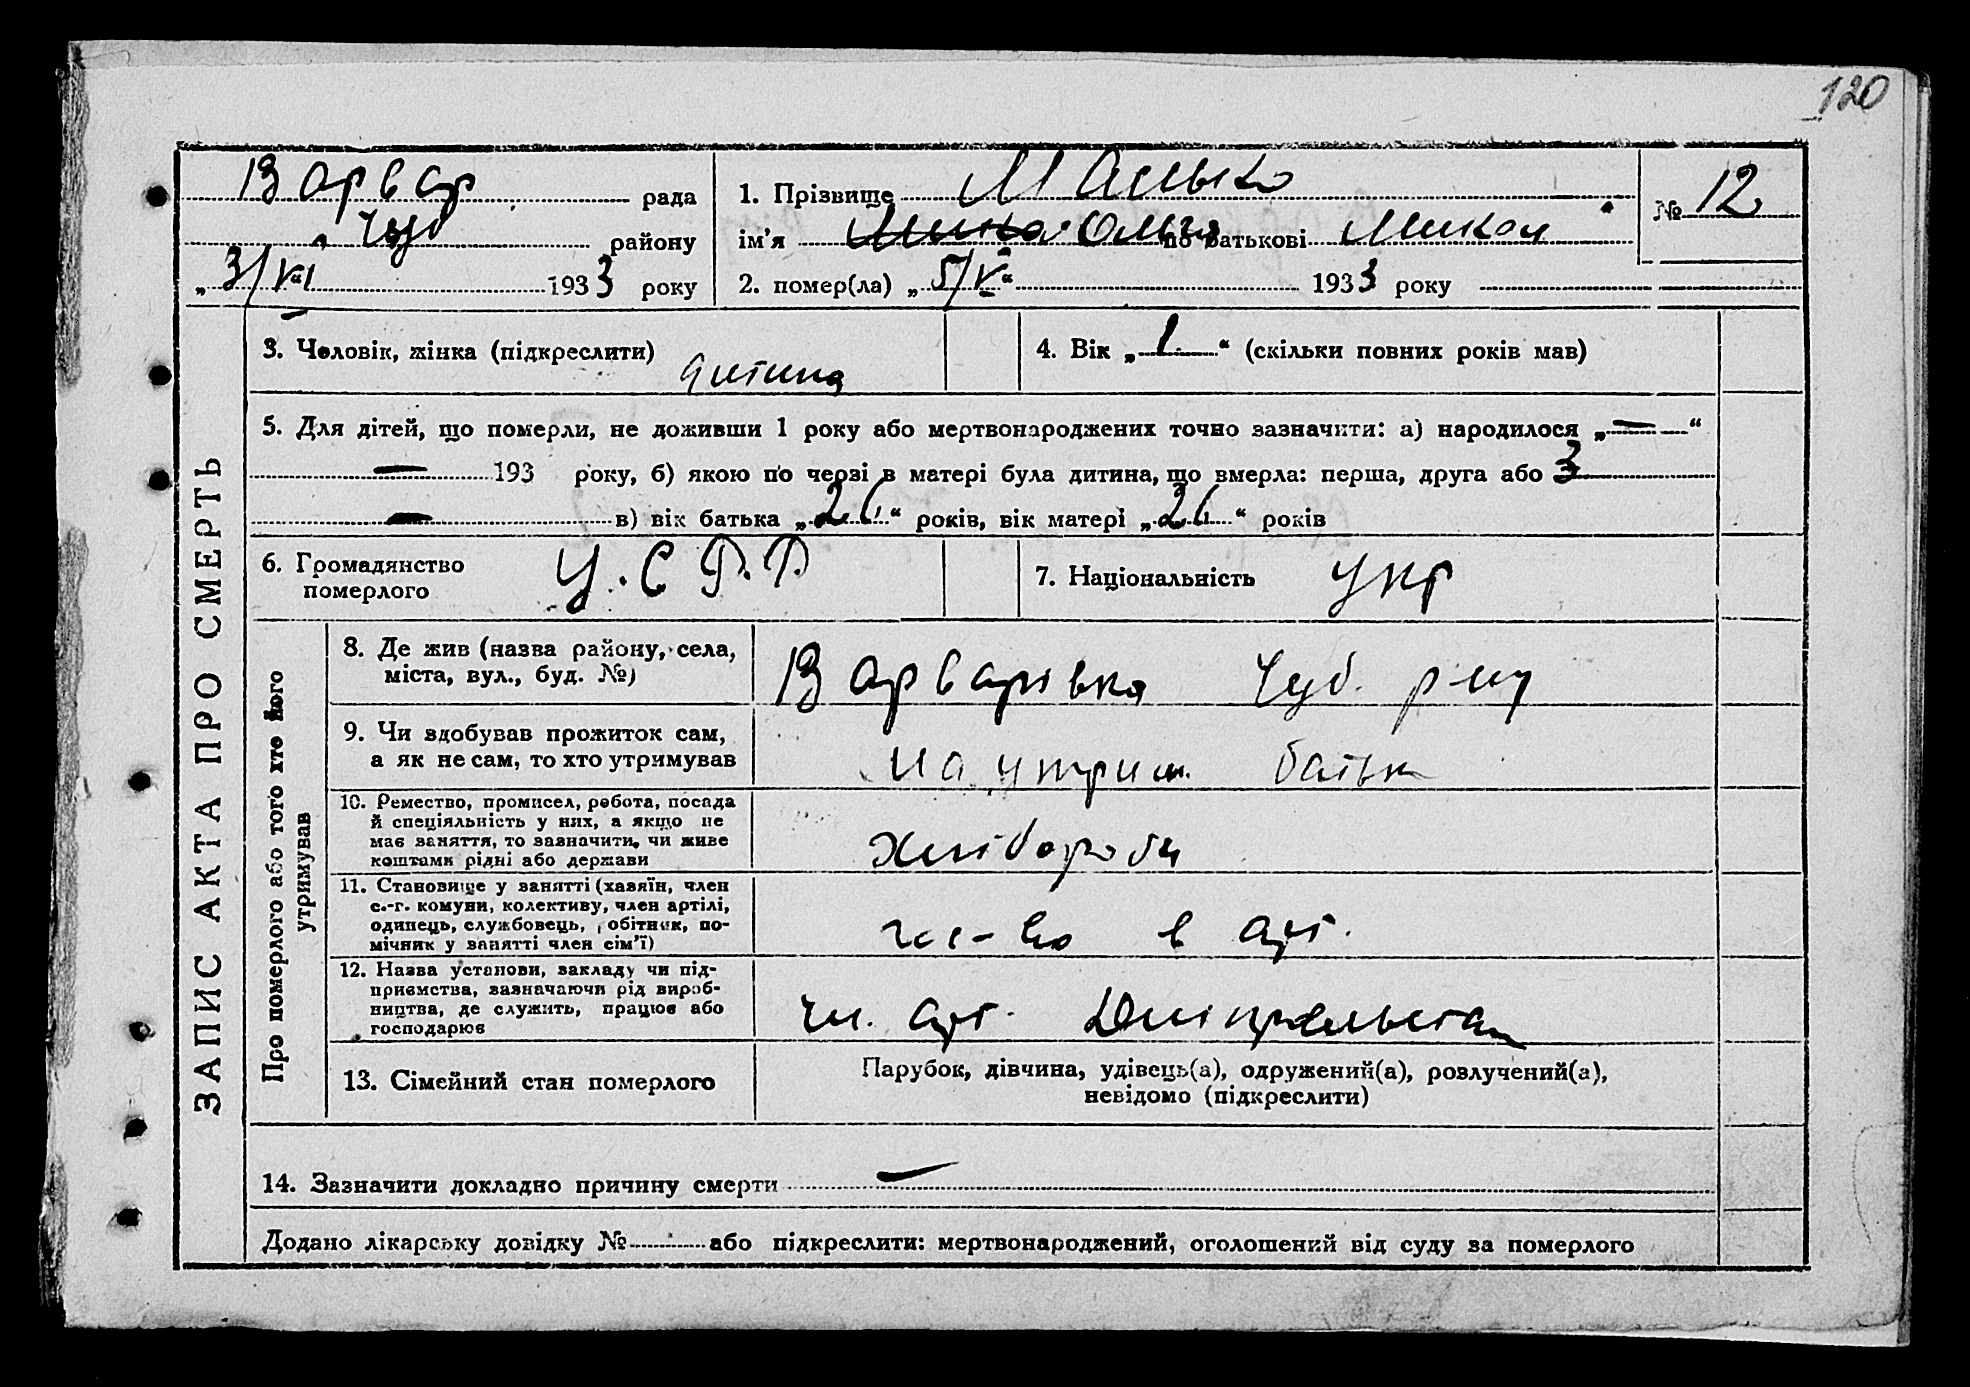 120
Варвар рада
Чуб району
„3/VI 1933 року
1. Прізвище Малько
№ 12
ім'я Ольга по батькові Микол
2. помер(ла) „5/V“ 1933 року
ЗАПИС АКТА ПРО СМЕРТЬ
3. Чоловік, жінка (підкреслити) дитина
4. Вік „1“ (скільки повних років мав)
5. Для дітей, що померли, не доживши 1 року або мертвонароджених точно зазначити: а) народилося „— — “
— 193 року, б) якою по черзі в матері була дитина, що вмерла: перша, друга або 3
— в) вік батька „26“ років, вік матері „26“ років
6. Громадянство
померлого У.С.Р.Р.
7. Національність Укр
Про померлого або того хто його
утримував
8. Де жив (назва району, села,
міста, вул., буд. №) Варварівка Чуб. р-ну
9. Чи здобував прожиток сам,
а як не сам, то хто утримував на утрим. батьк
10. Ремество, промисел, робота, посада
й спеціяльність у них, а якщо не
має заняття, то зазначити, чи живе
коштами рідні або держави
хлібороби
11. Становище у занятті (хазяїн, член
с.-г. комуни, колективу, член артілі,
одинець, службовець, робітник, по-
мічник у занятті член сім'ї)
в арт.
12. Назва установи, закладу чи під-
приємства, зазначаючи рід вироб-
ництва, де служить, працює або
господарює
чл. арт. Дніпрельстан
13. Сімейний стан померлого
Парубок, дівчина, удівець(а), одружений(а), розлучений(а),
невідомо (підкреслити)
14. Зазначити докладно причину смерти —
Додано лікарську довідку № або підкреслити: мертвонароджений, оголошений від суду за померлого